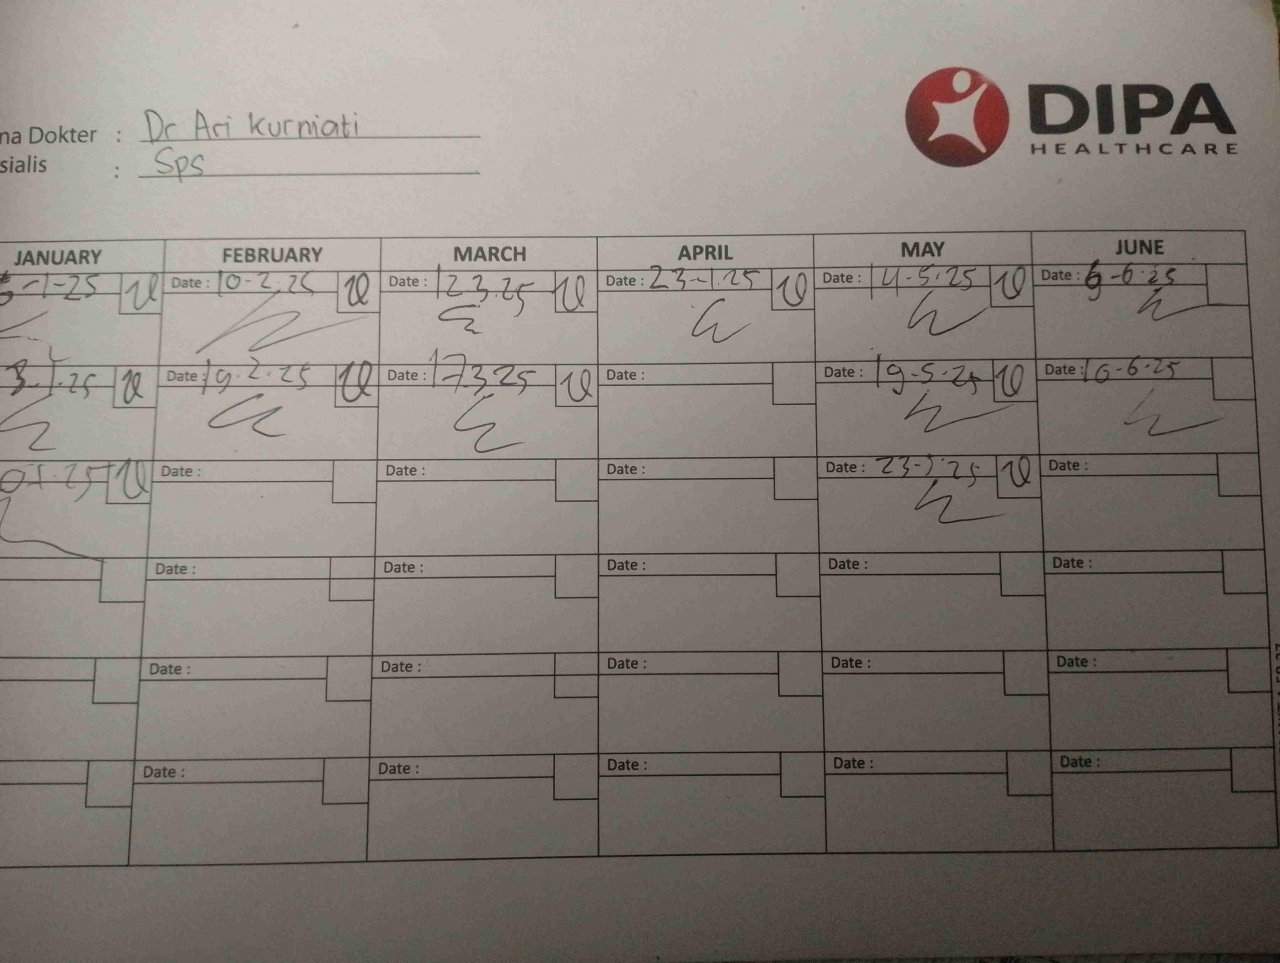 na Dokter : Dr Ari Kurniati
sialis : Sps
DIPA
HEALTHCARE
JANUARY FEBRUARY MARCH APRIL MAY JUNE
-1-25 Date : 10-2.25 Date : 12 3.25 Date : 23-1.25 Date : 14-5.25 Date : 9-6.25
3.1.25 Date : 19.2.25 Date : 17 3 25 Date : Date : 19-5.25 Date : 16-6-25
25 Date : Date : Date : Date : 23-5.25 Date :
Date : Date : Date : Date : Date :
Date : Date : Date : Date : Date :
Date : Date : Date : Date : Date :